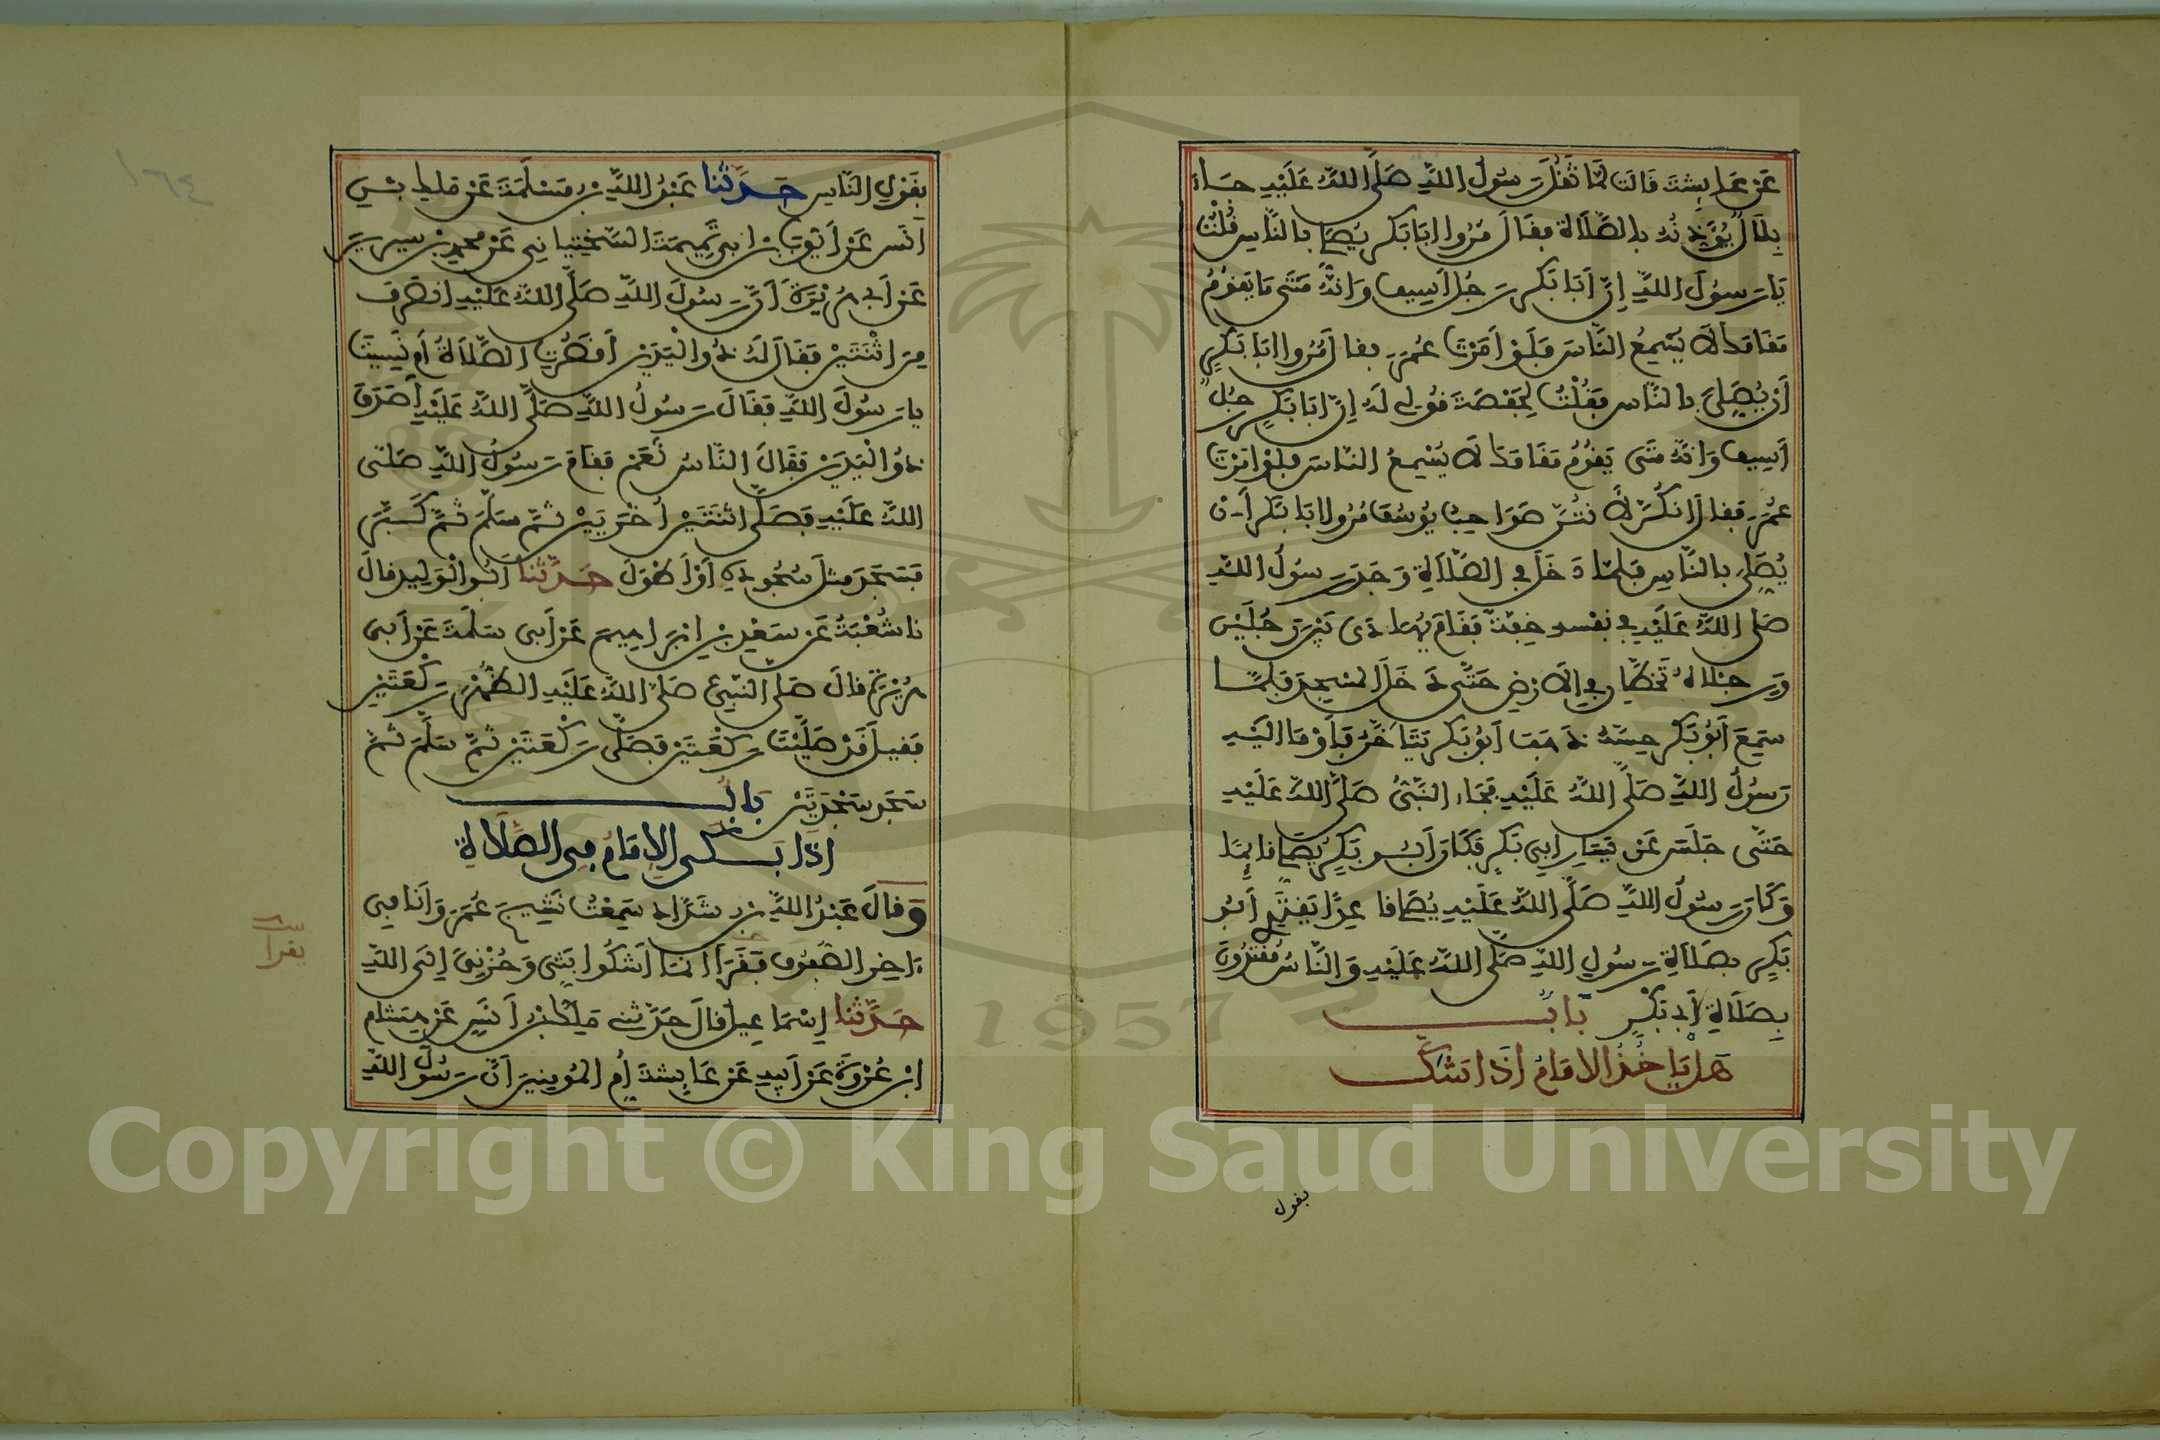 عَن عَائِشَةَ قَالَت لَمَّا ثَقُلَ رَسُولُ اللَّهِ صَلَّى اللَّهُ عَلَيْهِ جَاءَ
بِلَالٌ يُؤْذِنُهُ بِالصَّلَاةِ فَقَالَ مُرُوا أَبَا بَكْرٍ يُصَلِّ بِالنَّاسِ فَقُلْتُ
يَا رَسُولَ اللَّهِ إِنَّ أَبَا بَكْرٍ رَجُلٌ أَسِيفٌ وَإِنَّهُ مَتَى مَا يَقُومُ
مَقَامَكَ لَا يُسْمِعُ النَّاسَ فَلَوْ أَمَرْتَ عُمَرَ فقال مُرُوا أَبَا بَكْرٍ
أَنْ يُصَلِّيَ بِالنَّاسِ فَقُلْتُ لِحَفْصَةَ قُولِي لَهُ إِنَّ أَبَا بَكْرٍ رَجُلٌ
أَسِيفٌ وَإِنَّهُ مَتَى يَقُومُ مَقَامَكَ لَا يُسْمِعُ النَّاسَ فَلَوْ أَمَرْتَ
عُمَرَ فَقَالَ إِنَّكُنَّ لَأَنْتُنَّ صَوَاحِبُ يُوسُفَ مُرُوا أَبَا بَكْرٍ أَنْ
يُصَلِّيَ بِالنَّاسِ فَلَمَّا دَخَلَ فِي الصَّلَاةِ وَجَدَ رَسُولُ اللَّهِ
صَلَّى اللَّهُ عَلَيْهِ فِي نَفْسِهِ خِفَّةً فَقَامَ يُهَادَى بَيْنَ رَجُلَيْنِ
وَرِجْلَاهُ تَخُطَّانِ فِي الْأَرْضِ حَتَّى دَخَلَ الْمَسْجِدَ فَلَمَّا
سَمِعَ أَبُو بَكْرٍ حِسَّهُ ذَهَبَ أَبُو بَكْرٍ يَتَأَخَّرُ فَأَوْمَأَ إِلَيْهِ
رَسُولُ اللَّهِ صَلَّى اللَّهُ عَلَيْهِ فَجَاءَ النَّبِيُّ صَلَّى اللَّهُ عَلَيْهِ
حَتَّى جَلَسَ عَنْ يَسَارِ أَبِي بَكْرٍ فَكَانَ أَبُو بَكْرٍ يُصَلِّي قَائِمًا
وَكَانَ رَسُولُ اللَّهِ صَلَّى اللَّهُ عَلَيْهِ يُصَلِّي قَاعِدًا يَقْتَدِي أَبُو
بَكْرٍ بِصَلَاةِ رَسُولِ اللَّهِ صَلَّى اللَّهُ عَلَيْهِ وَالنَّاسُ مُقْتَدُونَ
بِصَلَاةِ أَبِي بَكْرٍ بَابٌ
هَل يَاخُذُ الإِمَامُ إِذَا شَكَّ
بقول
بِقَوْلِ النَّاسِ حَدَّثَنَا عَبْدُ اللَّهِ بْنُ مَسْلَمَةَ عَنْ مَالِكِ بْنِ
أَنَسٍ عَنْ أَيُّوبَ بْنِ أَبِي تَمِيمَةَ السَّخْتِيَانِي عَنْ مُحَمَّدِ بْنِ سِيرِينَ
عَنْ أَبِي هُرَيْرَةَ أَنَّ رَسُولَ اللَّهِ صَلَّى اللَّهُ عَلَيْهِ انْصَرَفَ
مِنَ اثْنَتَيْنِ فَقَالَ لَهُ ذُو الْيَدَيْنِ أَقَصُرَتِ الصَّلَاةُ أَمْ نَسِيتَ
يَا رَسُولَ اللَّهِ فَقَالَ رَسُولُ اللَّهِ صَلَّى اللَّهُ عَلَيْهِ أَصَدَقَ
ذُو الْيَدَيْنِ فَقَالَ النَّاسُ نَعَمْ فَقَامَ رَسُولُ اللَّهِ صَلَّى
اللَّهُ عَلَيْهِ فَصَلَّى اثْنَتَيْنِ أُخْرَيَيْنِ ثُمَّ سَلَّمَ ثُمَّ كَبَّرَ
فَسَجَدَ مِثْلَ سُجُودِهِ أَوْ أَطْوَلَ حَدَّثَنَا أَبُو الْوَلِيدِ قَالَ
نا شُعْبَةُ عَنْ سَعْدِ بْنِ إِبْرَاهِيمَ عَنْ أَبِي سَلَمَةَ عَنْ أَبِي
هُرَيْرَةَ قَالَ صَلَّى النَّبِيُّ صَلَّى اللَّهُ عَلَيْهِ الظُّهْرَ رَكْعَتَيْنِ
فَقِيلَ قَدْ صَلَّيْتَ رَكْعَتَيْنِ فَصَلَّى رَكْعَتَيْنِ ثُمَّ سَلَّمَ ثُمَّ
سَجَدَ سَجْدَتَيْنِ بَابٌ
إِذَا بَكَى الإِمَامُ فِي الصَّلَاةِ
وَقَالَ عَبْدُ اللَّهِ بْنُ شَدَّادٍ سَمِعْتُ نَشِيجَ عُمَرَ وَأَنَا فِي
ءَاخِرِ الصُّفُوفِ فَقَرَأَ إِنَّمَا أَشْكُوا بَثِّي وَحُزْنِيَ إِلَى اللَّهِ
يقرأ
حَدَّثَنَا إِسْمَاعِيلُ قَالَ حَدَّثَنِي مَالِكُ بْنُ أَنَسٍ عَنْ هِشَامِ
ابْنِ عُرْوَةَ عَنْ أَبِيهِ عَنْ عَائِشَةَ أُمِّ الْمُومِنِينَ أَنَّ رَسُولَ اللَّهِ
١٦٤
1957
Copyright © King Saud University